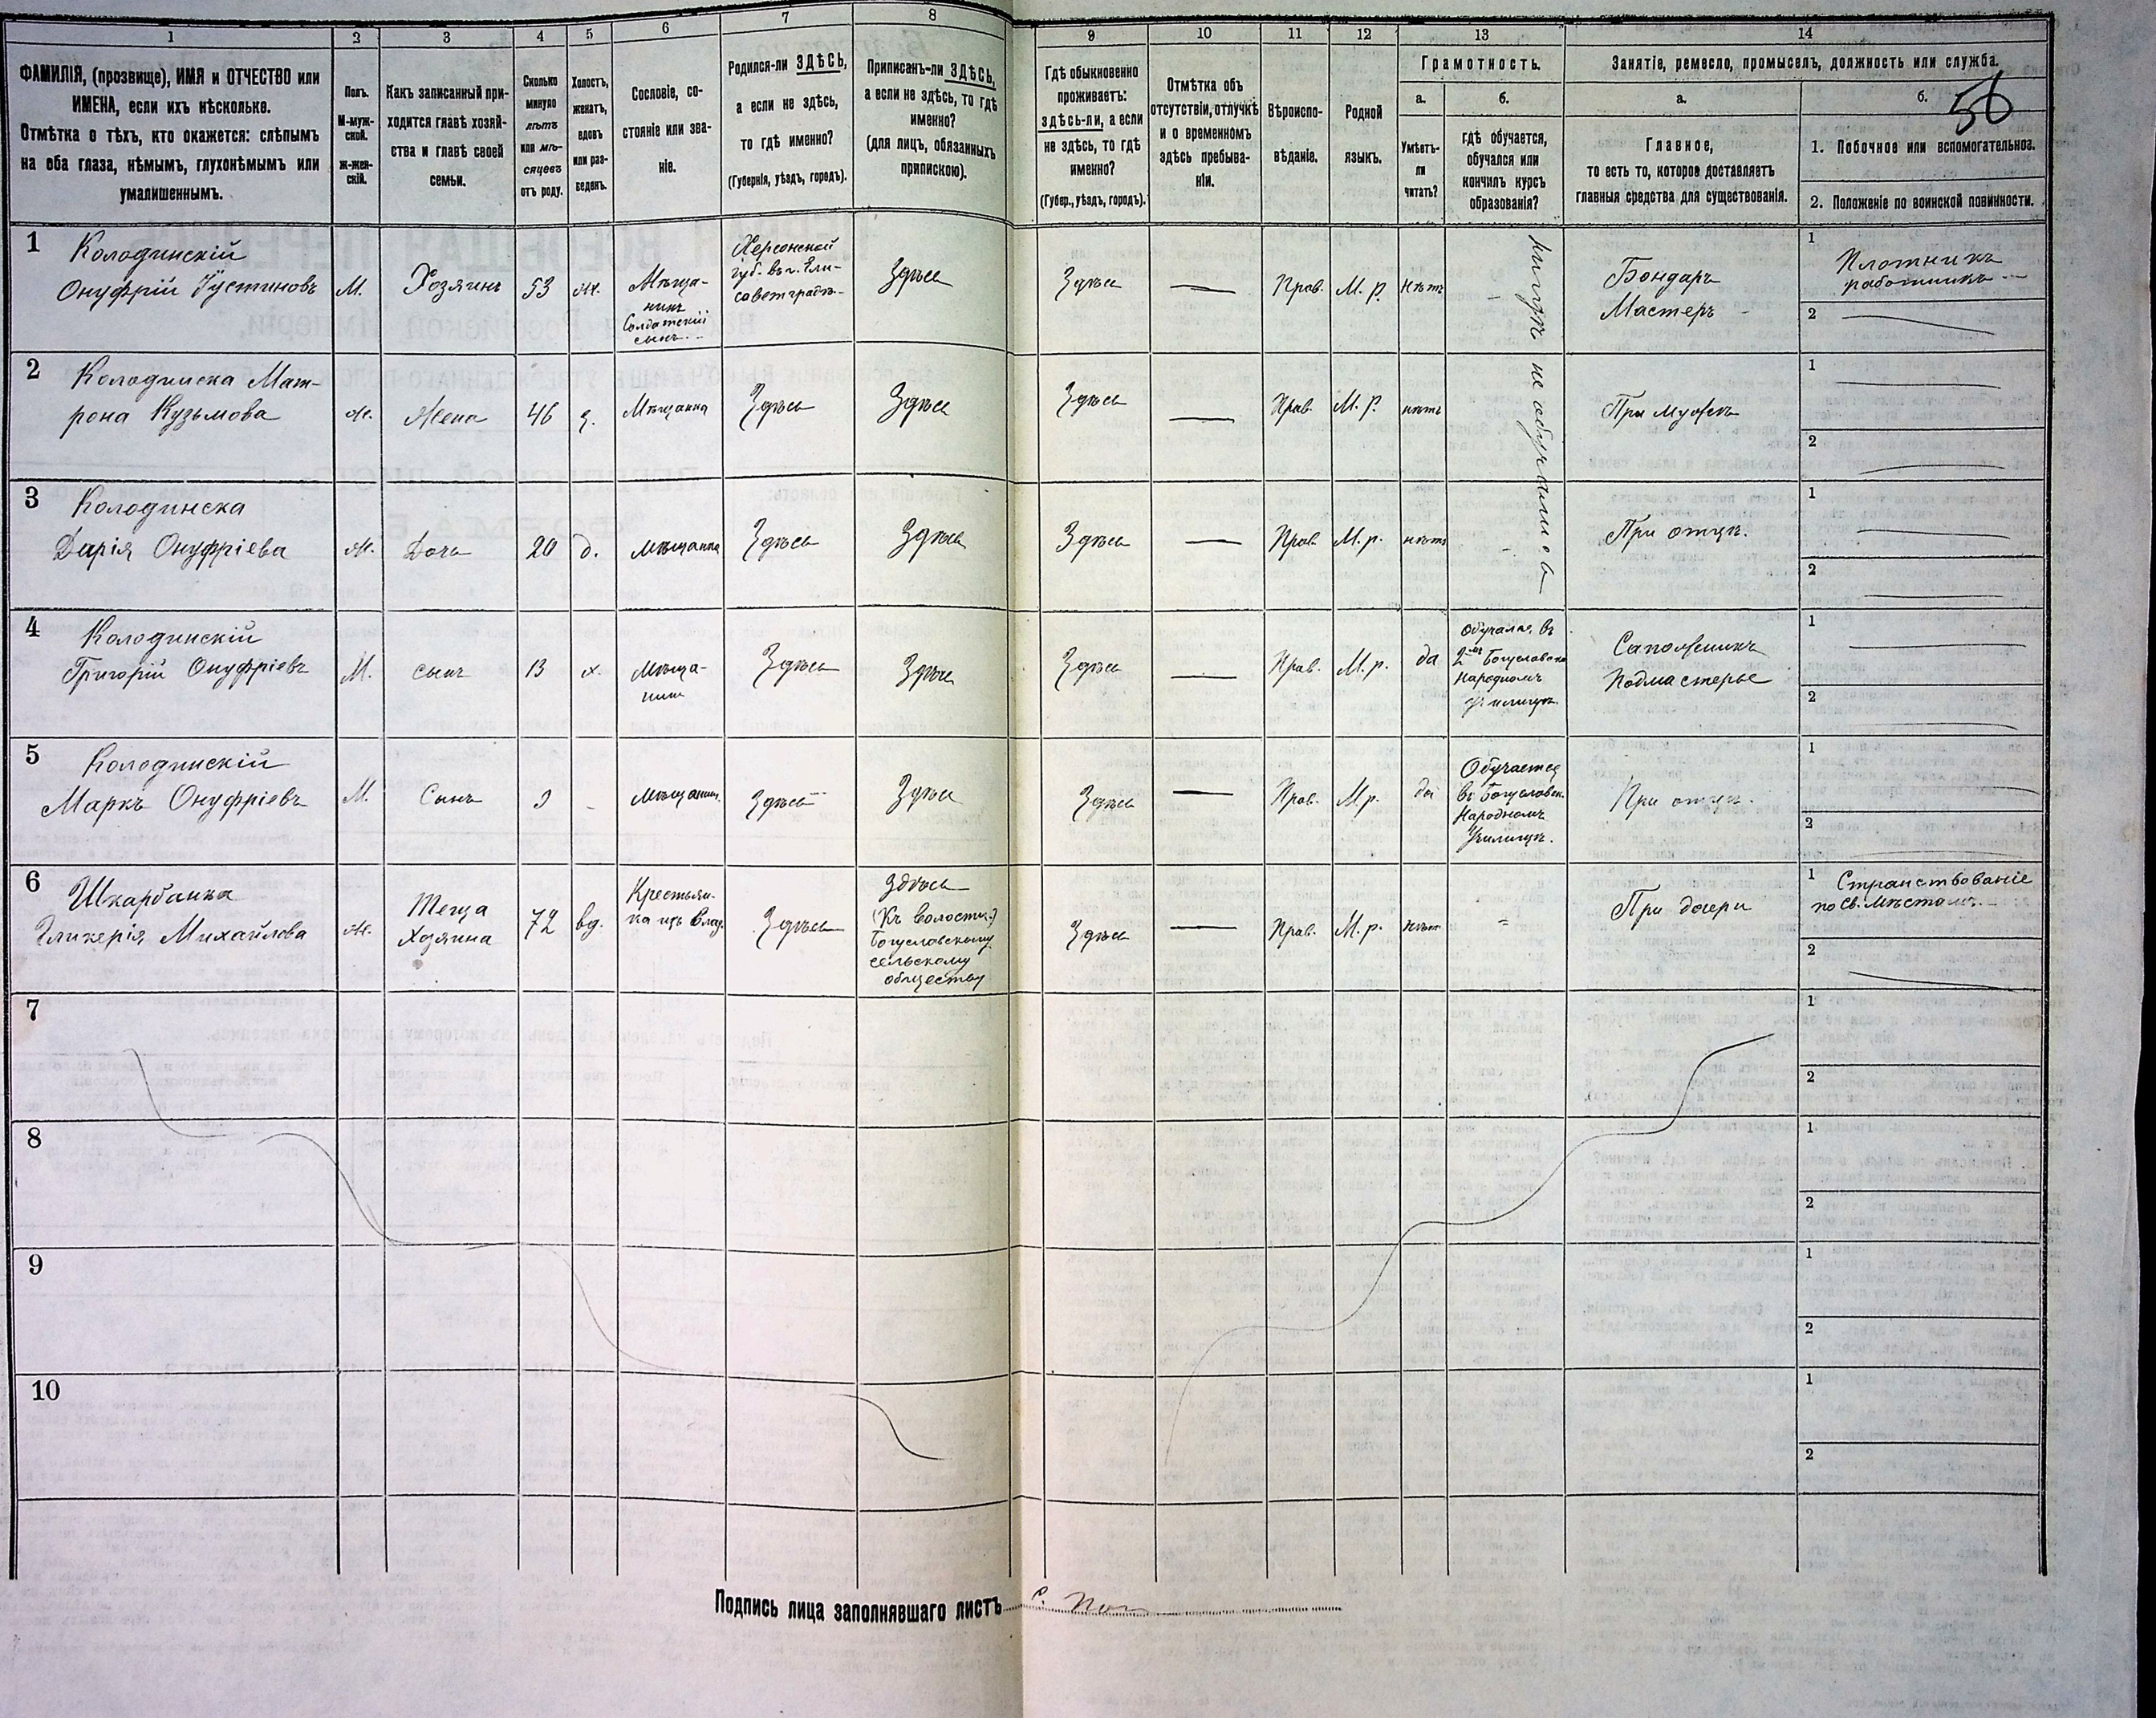 1
2
3
4
5
6
7
8
ФАМИЛІЯ, (прозвище), ИМЯ и ОТЧЕСТВО или
ИМЕНА, если ихъ нѣсколько.
Отмѣтка о тѣхъ, кто окажется: слѣпымъ
на оба глаза, нѣмымъ, глухонѣмымъ или
умалишеннымъ.
Полъ.
М-муж-
ской.
ж-жен-
скій.
Какъ записанный при-
ходится главѣ хозяй-
ства и главѣ своей
семьи.
Сколько
минуло
лѣтъ
или мѣ-
сяцевъ
отъ роду.
Холостъ,
женатъ,
вдовъ
или раз-
веденъ.
Сословіе, со-
стояніе или зва-
ніе.
Родился-ли ЗДѢСЬ,
а если не здѣсь,
то гдѣ именно?
(Губернія, уѣздъ, городъ).
Приписанъ-ли ЗДѢСЬ,
а если не здѣсь, то гдѣ
именно?
(для лицъ, обязанныхъ
припискою).
9
10
11
12
13
14
Гдѣ обыкновенно
проживаетъ:
здѣсь-ли, а если
не здѣсь, то гдѣ
именно?
(Губер., уѣздъ, городъ).
Отмѣтка объ
отсутствіи, отлучкѣ
и о временномъ
здѣсь пребыва-
ніи.
Вѣроиспо-
вѣданіе.
Родной
языкъ.
Грамотность.
а.
Умѣетъ-
ли
читать?
б.
гдѣ обучается,
обучался или
кончилъ курсъ
образованія?
Занятіе, ремесло, промыселъ, должность или служба.
а.
Главное,
то есть то, которое доставляетъ
главныя средства для существованія.
б.
56
1. Побочное или вспомогательное.
2. Положеніе по воинской повинности.
1
Колодинскій
Онуфрій Іустиновъ
М.
Хозяинъ
53
ж.
Мѣща-
нинъ
Солдатскій
сынъ.
Херсонской
губ. въ г. Ели-
саветградѣ
Здѣсь
Здѣсь
—
Прав.
М. р.
нѣтъ
нигдѣ не обучались
Бондарь
Мастеръ
1
Плотникъ
работникъ
2
2
Колодинска Мат-
рона Кузьмова
ж.
Жена
46
з.
Мѣщанка
Здѣсь
Здѣсь
Здѣсь
—
Прав.
М. р.
нѣтъ
При мужѣ
1
2
3
Колодинска
Дарія Онуфріева
ж.
Дочь
20
д.
мѣщанка
Здѣсь
Здѣсь
Здѣсь
—
Прав.
М. р.
нѣтъ
При отцѣ.
1
2
4
Колодинскій
Григорій Онуфріевъ
М.
сынъ
13
х.
Мѣща-
нин
Здѣсь
Здѣсь
Здѣсь
—
Прав.
М. р.
да
Обучался въ
Народномъ
училищѣ
Сапожникъ
Подмастерье
1
2
5
Колодинскій
Маркъ Онуфріевъ
М.
Сынъ
9
-
Мѣщанин.
Здѣсь
Здѣсь
Здѣсь
—
Прав.
М р.
да
Обучается
въ Богуславск.
Народномъ
Училищѣ.
При отцѣ.
1
2
6
Шкарбанка
Гликерія Михайлова
ж.
Теща
Хозяина
72
вд.
Крестьян-
ка изъ Влад.
Здѣсь
Здѣсь
(Къ волости)
Богуславскому
сельскому
обществу
Здѣсь
—
Прав.
М. р.
нѣтъ
При дочери
1
Странствованіе
по Св. Мѣстамъ.
2
7
1
2
8
1
2
9
1
2
10
1
2
Подпись лица заполнявшаго листъ